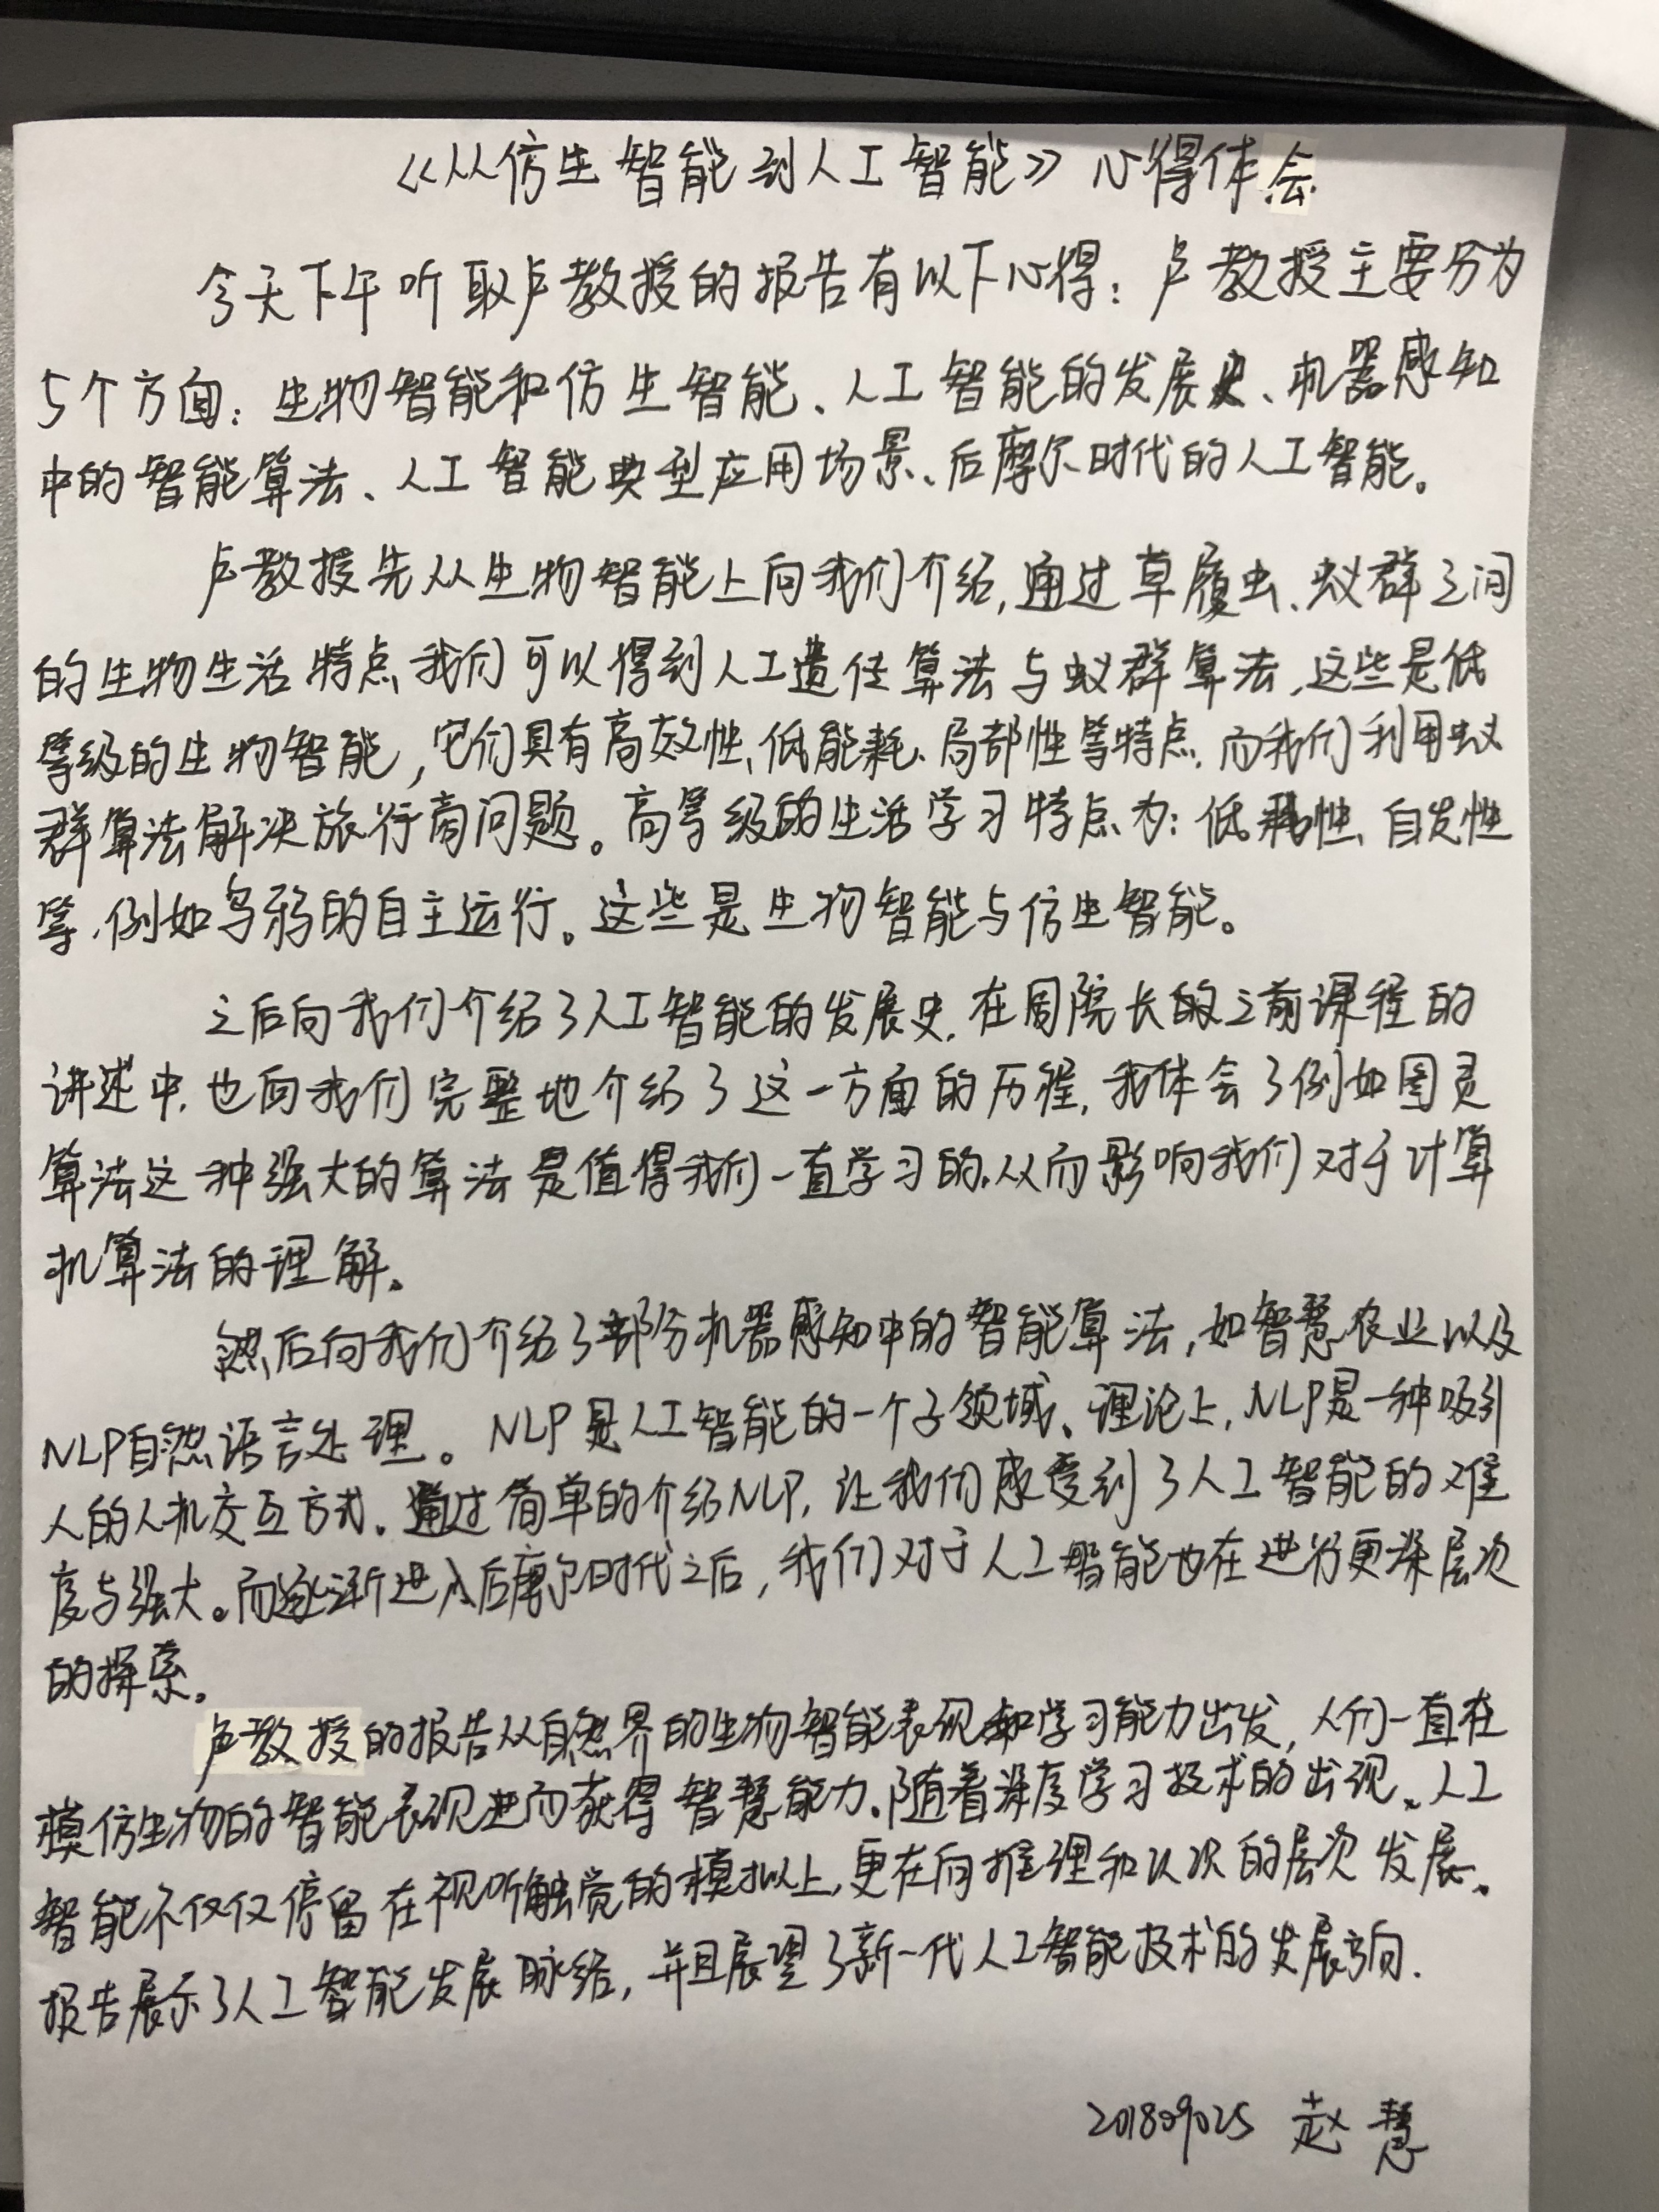 《从仿生智能到人工智能》心得体会
今天下午听取卢教授的报告有以下心得：卢教授主要分为
5个方面：生物智能和仿生智能、人工智能的发展史、机器感知
中的智能算法、人工智能典型应用场景、后摩尔时代的人工智能。
卢教授先从生物智能上向我们介绍，通过草履虫、蚁群之间
的生物生活特点我们可以得到人工遗传算法与蚁群算法，这些是低
等级的生物智能，它们具有高效性、低能耗、局部性等特点，而我们利用蚁
群算法解决旅行商问题。高等级的生活学习特点为：低耗性、自发性
等，例如乌鸦的自主运行。这些是生物智能与仿生智能。
之后向我们介绍了人工智能的发展史，在周院长的之前课程的
讲述中，也向我们完整地介绍了这一方面的历程，我体会了例如图灵
算法这一种强大的算法是值得我们一直学习的，从而影响我们对于计算
机算法的理解。
然后向我们介绍了部分机器感知中的智能算法，如智慧农业以及
NLP自然语言处理。NLP是人工智能的一个子领域、理论上，NLP是一种吸引
人的人机交互方式。通过简单的介绍NLP，让我们感受到了人工智能的难
度与强大。而逐渐进入后摩尔时代之后，我们对于人工智能也在进行更深层次
的探索。
卢教授的报告从自然界的生物智能表现和学习能力出发，人们一直在
模仿生物的智能表现进而获得智慧能力。随着深度学习技术的出现、人工
智能不仅仅停留在视听触觉的模拟上，更在向推理和认识的层次发展。
报告展示了人工智能发展脉络，并且展望了新一代人工智能技术的发展方向.
201809025 赵慧